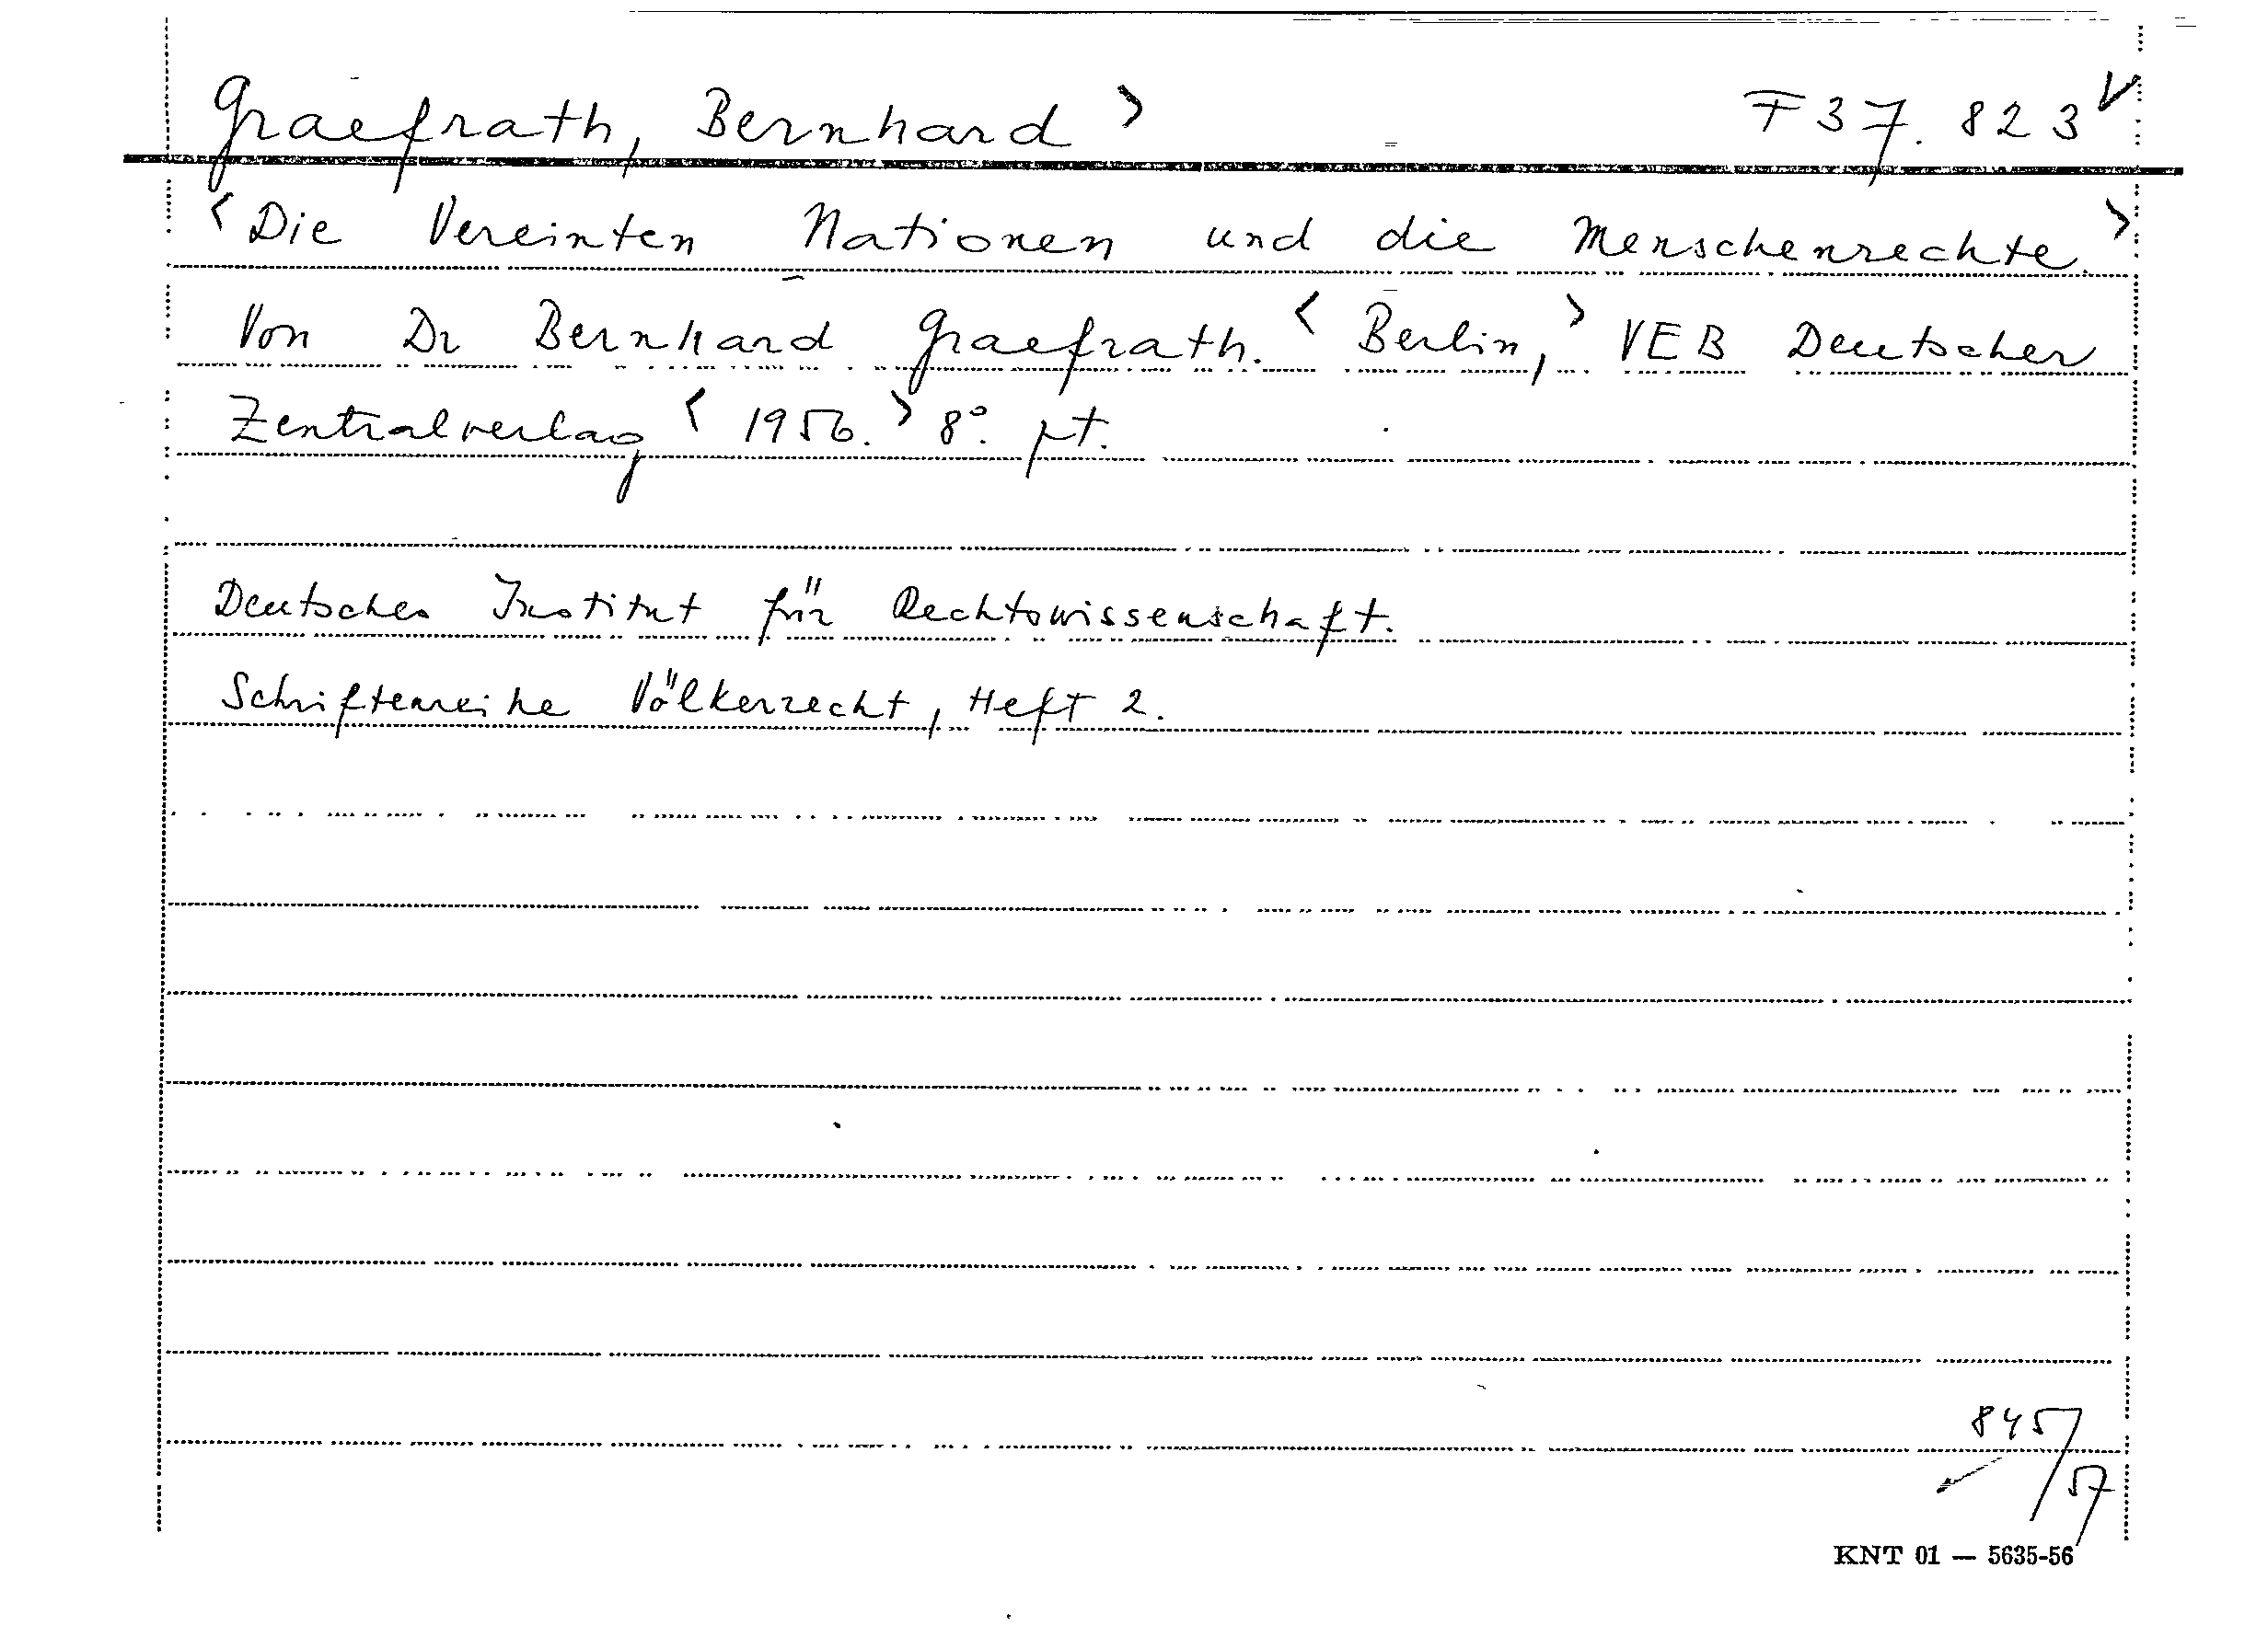 Graefrath, Bernhard > F 37.823 V
<Die Vereinten Nationen und die Menschenrechte.>
Von Dr Bernhard Graefrath. <Berlin,> VEB Deutscher
Zentralverlag <1956.> 8°. pt.
Deutsches Institut für Rechtswissenschaft.
Schriftenreihe Völkerrecht, Heft 2.
845/57
KNT 01 — 5635-56